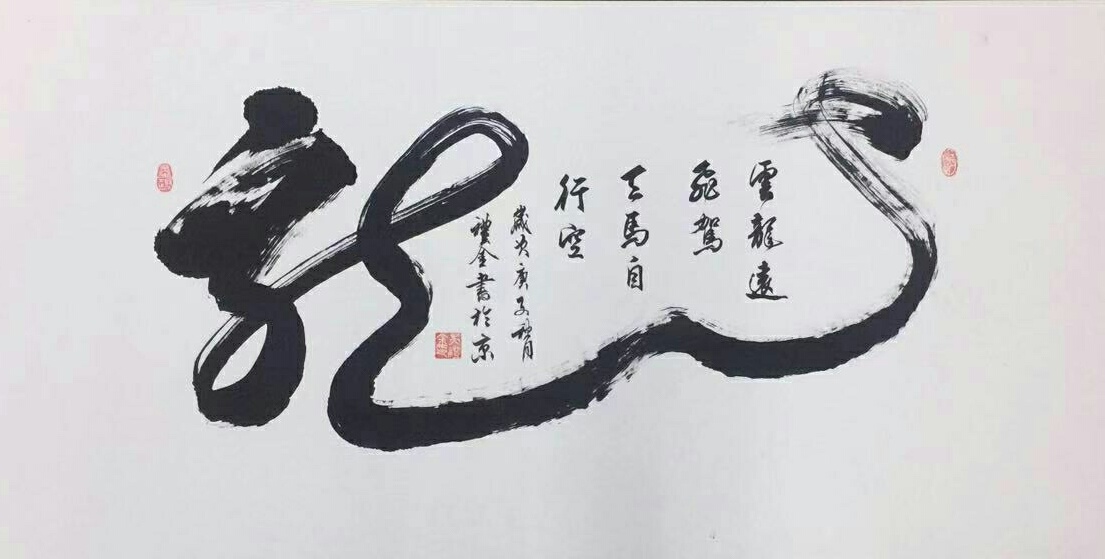 龍
雲龍遠
飛駕
天馬自
行空
歲次庚子月
禮金書於京